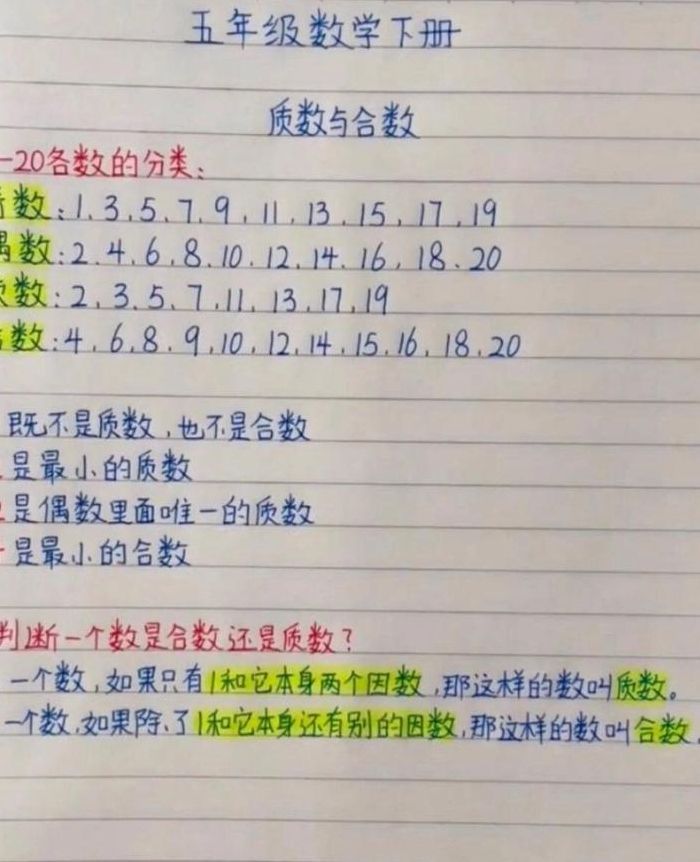 五年级数学下册
质数与合数
-20各数的分类：
数：1、3、5、7、9、11、13、15、17、19
偶数：2、4、6、8、10、12、14、16、18、20
质数：2、3、5、7、11、13、17、19
数：4、6、8、9、10、12、14、15、16、18、20
既不是质数，也不是合数
是最小的质数
2是偶数里面唯一的质数
是最小的合数
判断一个数是合数还是质数？
一个数，如果只有1和它本身两个因数，那这样的数叫质数。
一个数，如果除了1和它本身还有别的因数，那这样的数叫合数，